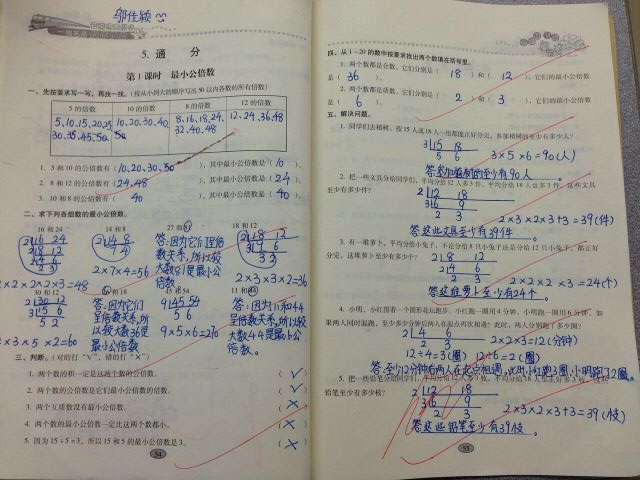 邬佳颖
5. 通 分
第1课时 最小公倍数
一、先按要求写一写，再找一找。(按从小到大的顺序写出50以内各数的所有倍数)
5的倍数 10的倍数 8的倍数 12的倍数
5,10,15,20,25,
30,35,45,50
10,20,30,40,
50
8,16,18,24,
32,40,48
12,24,36,48
1. 5和10的公倍数有(10,20,30,50),其中最小公倍数是(10)。
2. 8和12的公倍数有(24,48),其中最小公倍数是(24)。
3. 10和8的公倍数有(40),其中最小公倍数是(40)。
二、求下列各组数的最小公倍数。
16和24 14和8 27和81 18和12
2 16 24
2 8 12
2 4 6
2 3
2×2×2×2×3=48
2 14 8
7 4
2×7×4=56
答:因为它们是倍
数关系,所以较
大数81是最小公
倍数
2 18 12
3 9 6
3 2
2×3×3×2=36
30和12 45和54
2 30 12
3 15 6
5 2
2×3×5×2=60
答:因为它们
呈倍数关系,所
以较大数36是
最小公倍数
9 45 54
5 6
9×5×6=270
答:因为11和44
呈倍数关系,所以
较大数44是最小公
倍数。
三、判断。(对的打“√”，错的打“×”)
1. 两个数的积一定是这两个数的公倍数。 (√)
2. 两个数的公倍数是它们最小公倍数的倍数。 (√)
3. 两个互质数没有最小公倍数。 (×)
4. 两个数的最小公倍数一定比这两个数都小。 (×)
5. 因为15÷5=3，所以15和5的最小公倍数是3。 (×)
54
四、从1-20的数中按要求找出两个数填在括号里。
1. 两个数都是合数，它们分别是(18)和(12)，它们的最小公倍数
是(36)。
2. 两个数都是质数，它们分别是(2)和(3)，它们的最小公倍数
是(6)。
五、解决问题。
1. 同学们去植树，按15人或18人一组都能正好分完，参加植树的至少有多少人？
3 15 18
5 6
3×5×6=90(人)
答:参加植树的至少有90人。
2. 把一些文具分给同学们，平均分给12人多3件，平均分给18人也多3件，这些文具
至少有多少件？
2 12 18
3 6 9
2 3
2×3×2×3+3=39(件)
答:这些文具至少有39件。
3. 有一堆萝卜，平均分给小兔子，不论分给8只小兔子还是分给12只小兔子，都正好
分完，这堆萝卜至少有多少个？
2 8 12
2 4 6
2 3
2×2×2×3=24(个)
答:这堆萝卜至少有24个。
4. 小明、小红围着一个圆形花坛跑步，小红跑一圈用4分钟，小明跑一圈用6分钟，如
果两人同时起跑，至少多少分钟后两人在起点再次相遇？此时，两人分别跑了多少圈？
2 4 6
2 3
2×2×3=12(分钟)
12÷4=3(圈) 12÷6=2(圈)
答:至少12分钟后两人在起点相遇,此时小红跑3圈,小明跑2圈。
5. 把一些铅笔分给同学们，平均分给12人多3枝，平均分给18人也正好多3枝，这些
铅笔至少有多少枝？
2 12 18
3 6 9
2 3
2×3×2×3+3=39(枝)
答:这些铅笔至少有39枝。
55